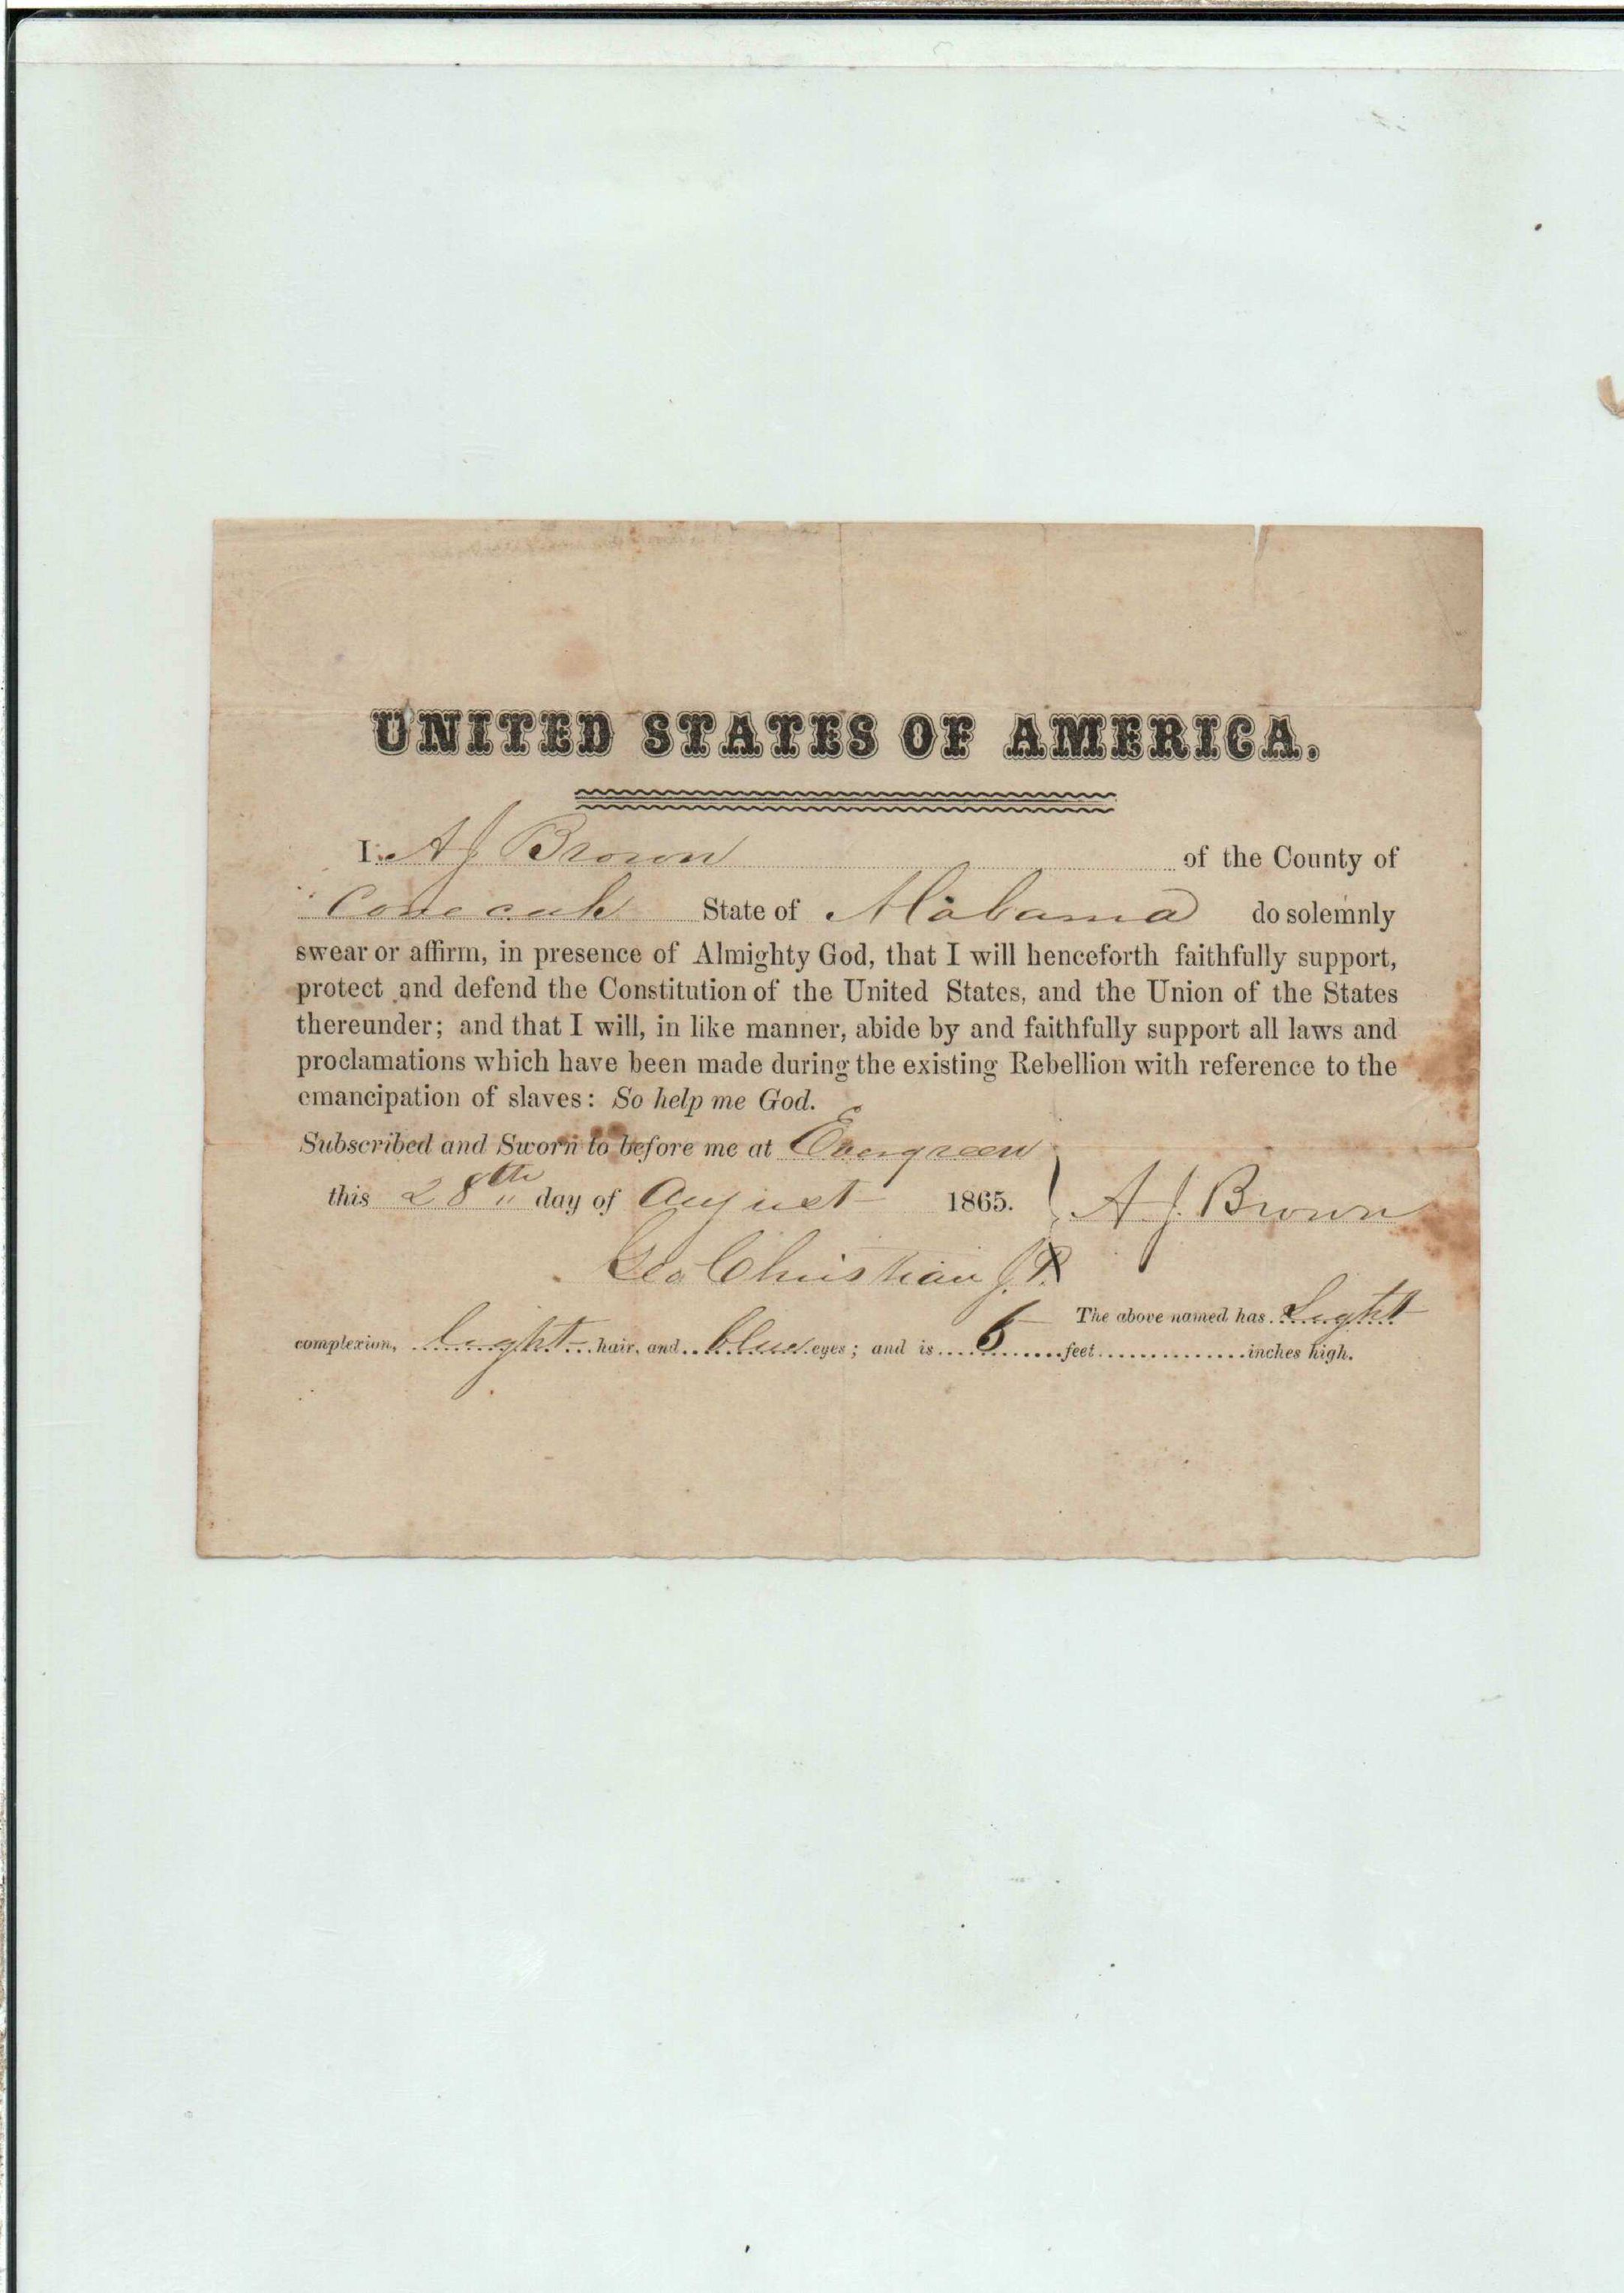 UNITED STATES OF AMERICA.
I. A J Brown of the County of
Conecuh State of Alabama do solemnly
swear or affirm, in presence of Almighty God, that I will henceforth faithfully support,
protect and defend the Constitution of the United States, and the Union of the States
thereunder; and that I will, in like manner, abide by and faithfully support all laws and
proclamations which have been made during the existing Rebellion with reference to the
emancipation of slaves: So help me God.
Subscribed and Sworn to before me at Evergreen
this 28th day of August 1865. } A. J. Brown
Geo Christian J. P.
The above named has Light
complexion, light hair, and blue eyes; and is 6 feet inches high.